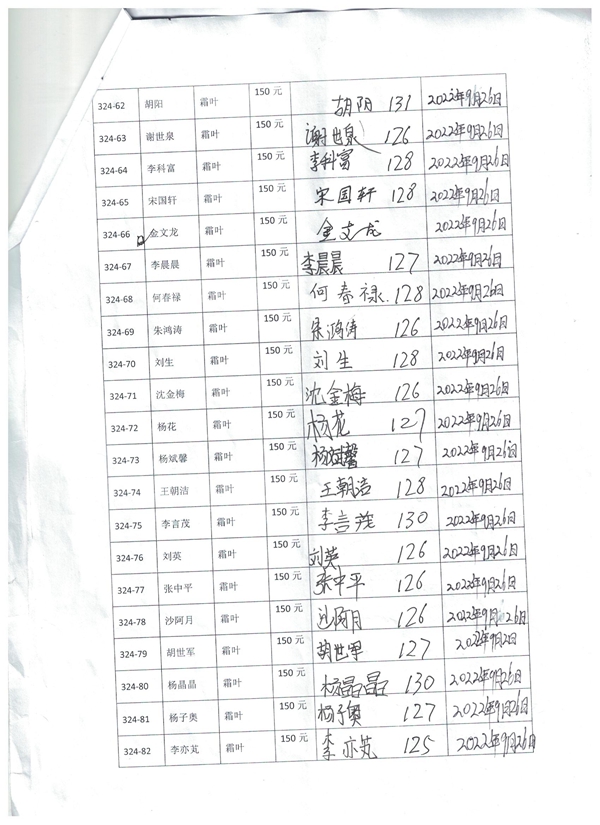 324-62 胡阳 霜叶 150 元 胡阳 131 2022年9月26日
324-63 谢世泉 霜叶 150 元 谢世泉 126 2022年9月26日
324-64 李科富 霜叶 150 元 李科富 128 2022年9月26日
324-65 宋国轩 霜叶 150 元 宋国轩 128 2022年9月26日
324-66 金文龙 霜叶 150 元 金文龙 2022年9月26日
324-67 李晨晨 霜叶 150 元 李晨晨 127 2022年9月26日
324-68 何春禄 霜叶 150 元 何春禄 128 2022年9月26日
324-69 朱鸿涛 霜叶 150 元 朱鸿涛 126 2022年9月26日
324-70 刘生 霜叶 150 元 刘生 128 2022年9月26日
324-71 沈金梅 霜叶 150 元 沈金梅 126 2022年9月26日
324-72 杨花 霜叶 150 元 杨花 127 2022年9月26日
324-73 杨斌馨 霜叶 150 元 杨斌馨 127 2022年9月26日
324-74 王朝洁 霜叶 150 元 王朝洁 128 2022年9月26日
324-75 李言茂 霜叶 150 元 李言茂 130 2022年9月26日
324-76 刘英 霜叶 150 元 刘英 126 2022年9月26日
324-77 张中平 霜叶 150 元 张中平 126 2022年9月26日
324-78 沙阿月 霜叶 150 元 沙阿月 126 2022年9月26日
324-79 胡世军 霜叶 150 元 胡世军 127 2022年9月2日
324-80 杨晶晶 霜叶 150 元 杨晶晶 130 2022年9月26日
324-81 杨子奥 霜叶 150 元 杨子奥 127 2022年9月26日
324-82 李亦芃 霜叶 150 元 李亦芃 125 2022年9月26日